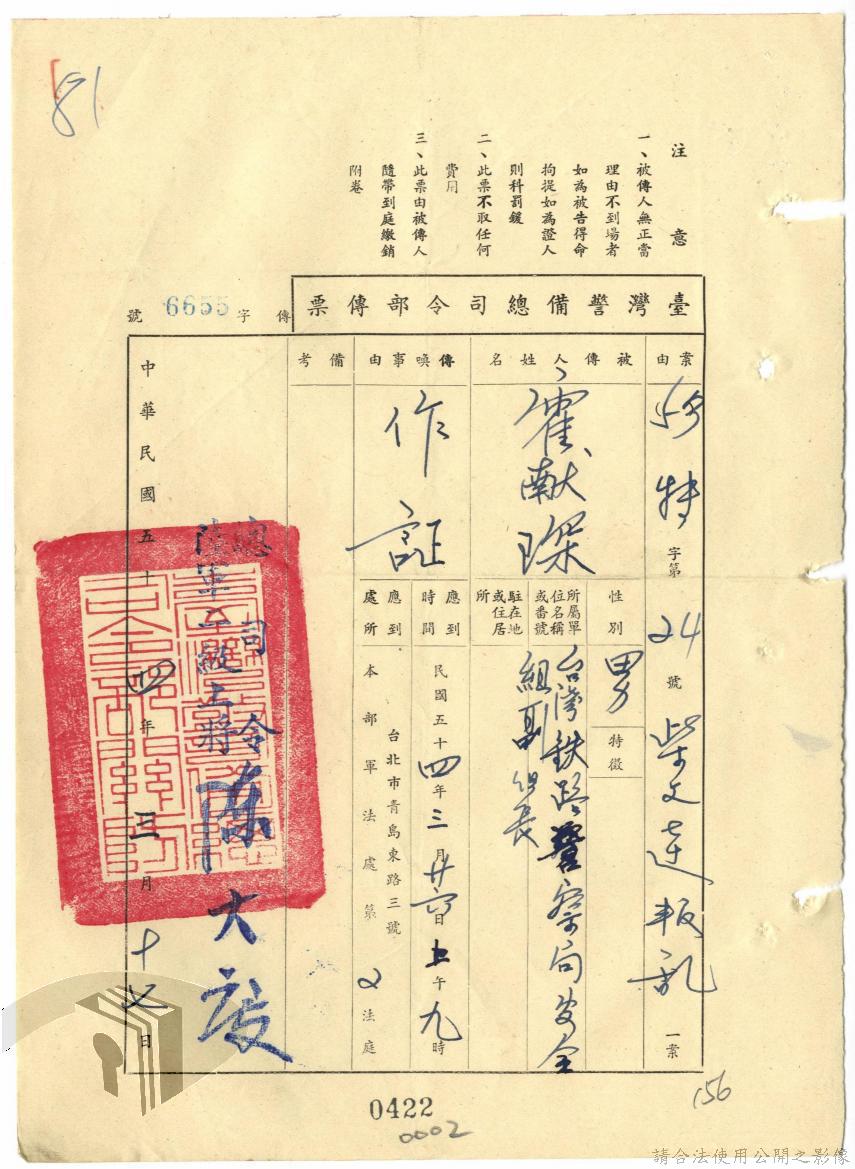 81
注意
一、被傳人無正當
理由不到場者
如為被告得命
拘提如為證人
則科罰鍰
二、此票不取任何
費用
三、此票由被傳人
隨帶到庭繳銷
附卷
臺灣警備總司令部傳票
傳字6655號
案由
特字第24號
柴文達叛乱一案
被傳人姓名
霍献琛
性別
男
特徵
所屬單位名稱或番號駐在地或住居所
台灣铁路警察局安全
組副組長
傳喚事由
作証
應到時間
民國五十四年三月廿六日上午九時
應到處所
台北市青島東路三號
本部軍法處第2法庭
備考
總司令
陸軍二級上將陳大慶
中華民國五十四年三月十七日
0422
0002
156
請合法使用公開之影像